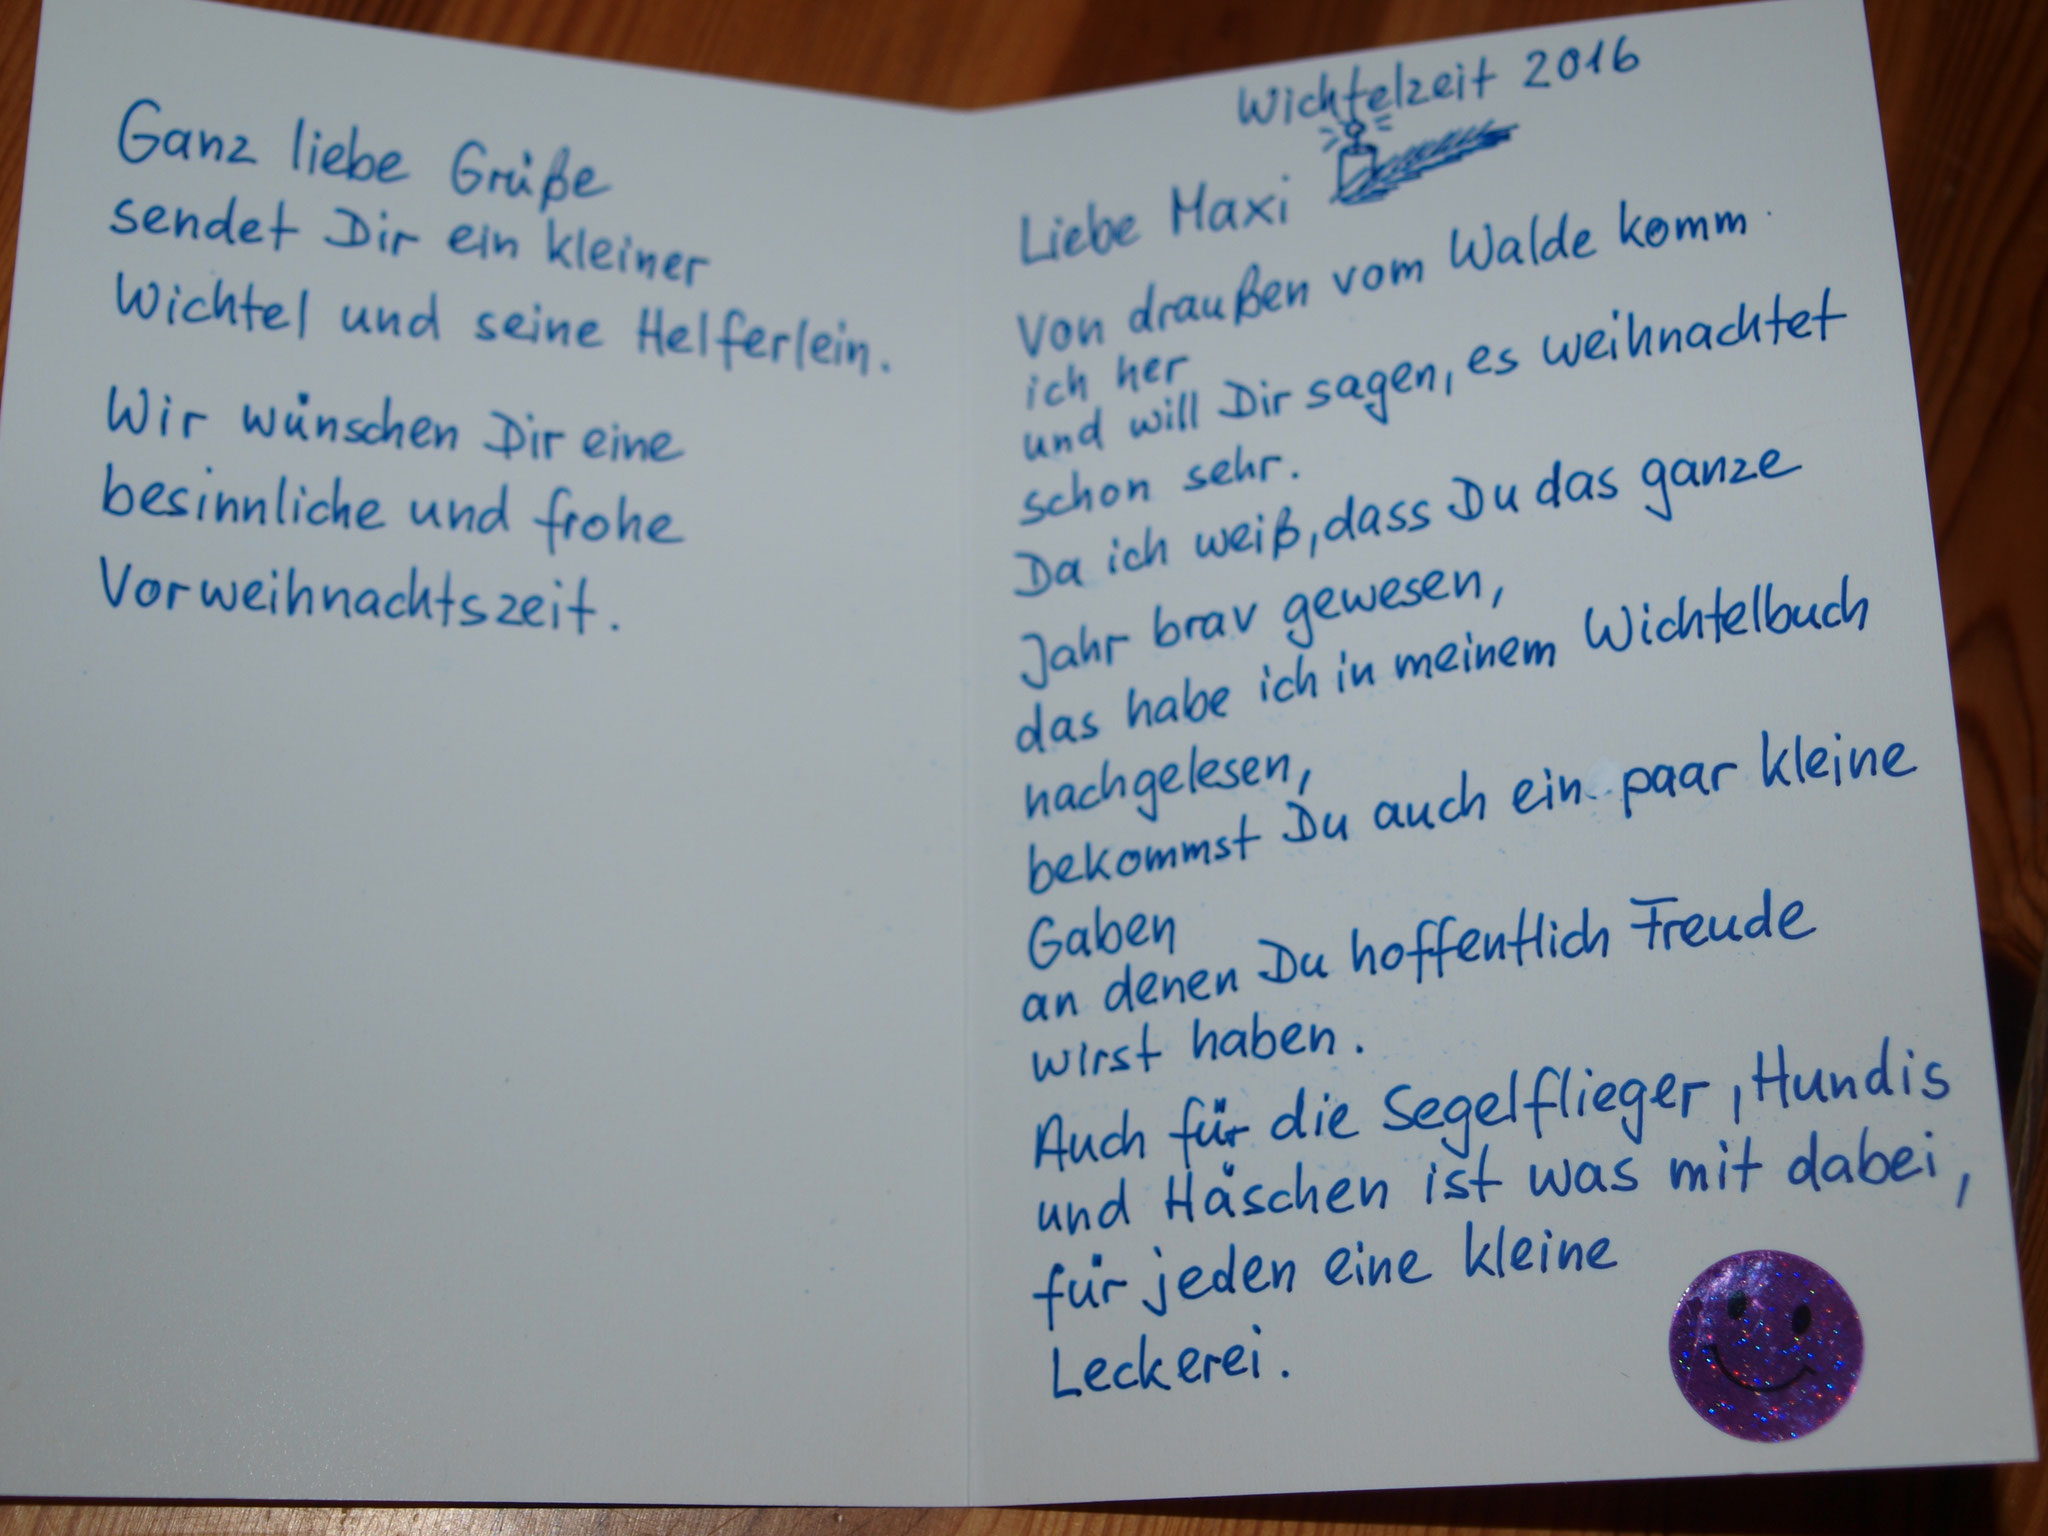 Ganz liebe Grüße
sendet Dir ein kleiner
Wichtel und seine Helferlein.
Wir wünschen Dir eine
besinnliche und frohe
Vorweihnachtszeit.
Wichtelzeit 2016
Liebe Maxi
Von draußen vom Walde komm
ich her
und will Dir sagen, es weihnachtet
schon sehr.
Da ich weiß, dass Du das ganze
Jahr brav gewesen,
das habe ich in meinem Wichtelbuch
nachgelesen,
bekommst Du auch ein paar kleine
Gaben
an denen Du hoffentlich Freude
wirst haben.
Auch für die Segelflieger, Hundis
und Häschen ist was mit dabei,
für jeden eine kleine
Leckerei.